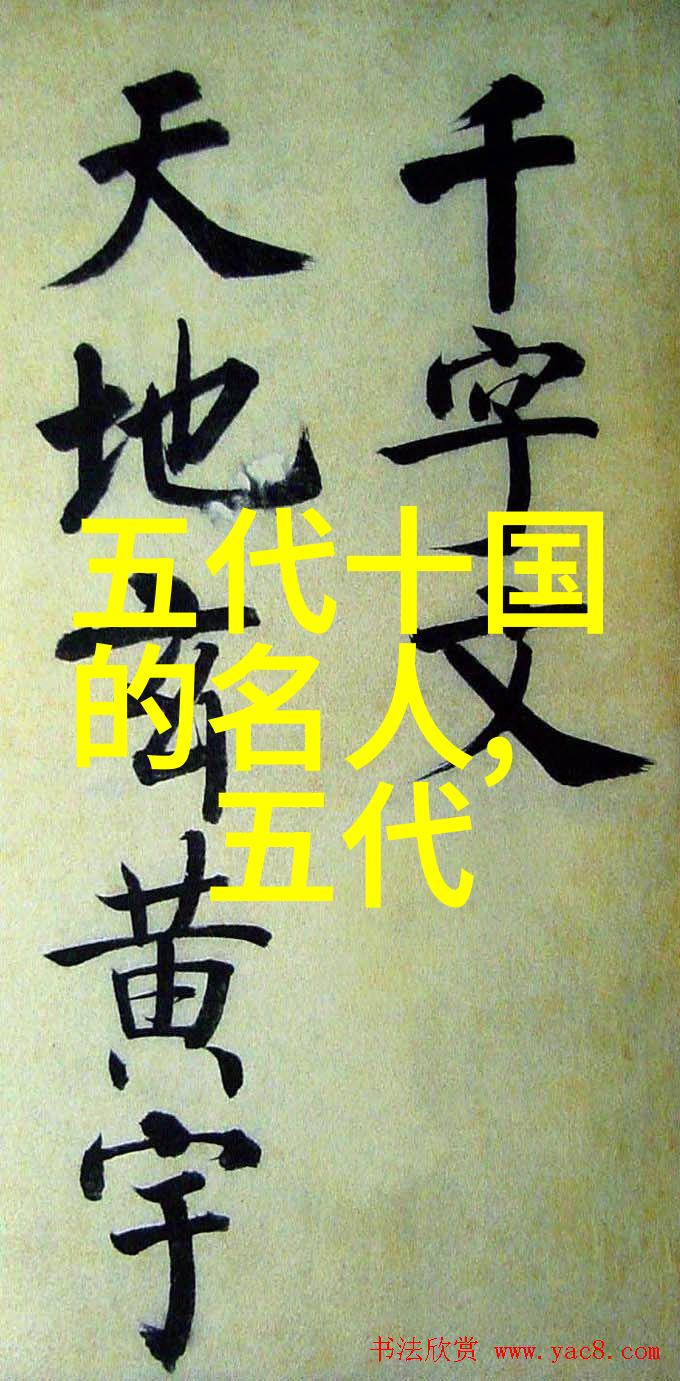 千字文
天地玄黄宇
五代十国
的名人,
五代
书法欣赏 www.yac8.com